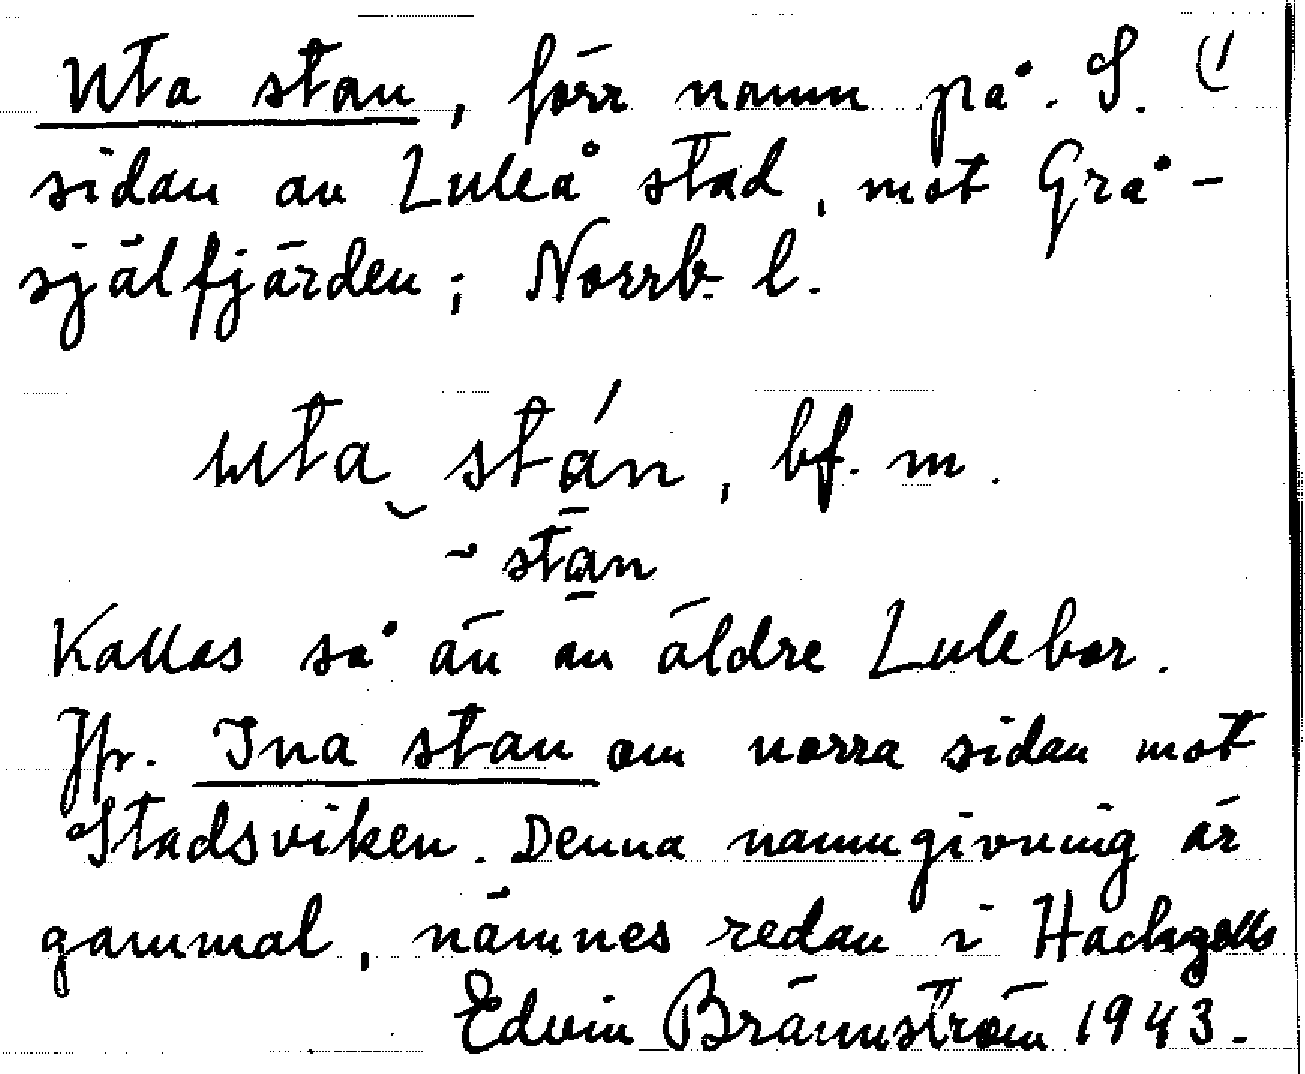 Uta stan, förr namn på S. (1
sidan av Luleå stad, mot Grå-
själfjärden; Norrb. l.
uta stán, bf. m.
- stān
Kallas så än av äldre Lulebor.
Jfr. Ina stan om norra sidan mot
Stadsviken. Denna namngivning är
gammal, nämnes redan i Hackzells
Edvin Brännström 1943.